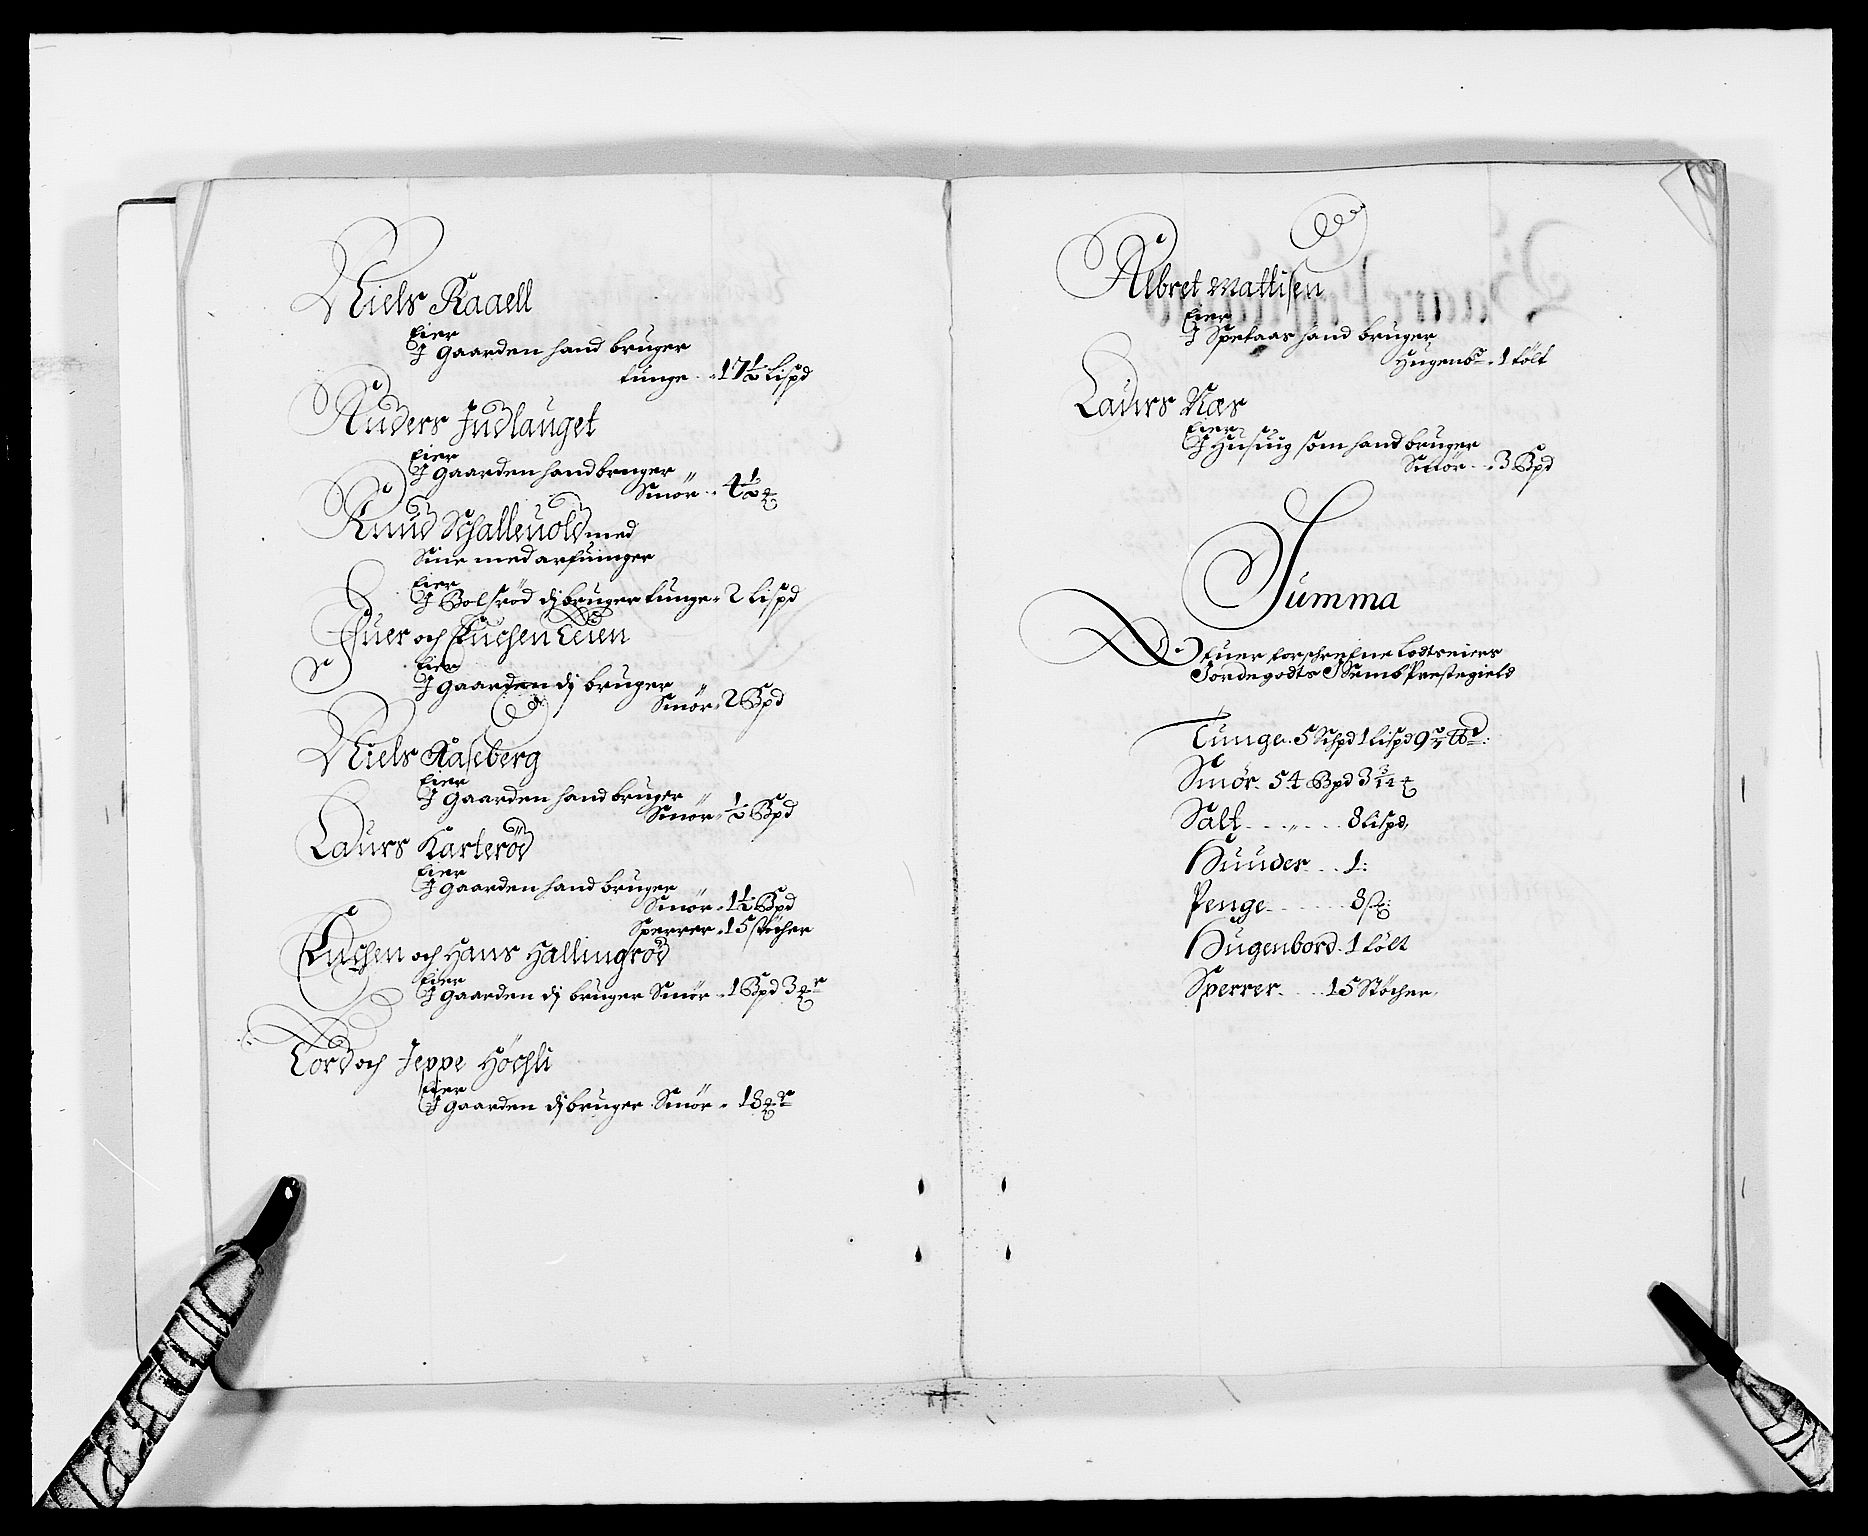 Niels Raaell
Eier
J Gaarden hand bruger
tunge 17½ Lispd
Anders Indlauget
Eier
J Gaarden hand bruger
Smør 4½
Knud Schalleuold med
Sine med arfuinger
Eier
J Bolsrød dj bruger tunge 2 Lispd
Juer och Leien
Eier
J Gaarden dj bruger
Smør 2 Bpd
Niels Raseberg
Eier
J Gaarden hand bruger
Smør ½ Bpd
Laurs Karterød
Eier
J Gaarden hand bruger
Smør 1½ Bpd
Sperrer 15 støcher
och Hans Hallingrød
Eier
J Gaarden dj bruger Smør 1 Bpd 3
Tord och Jeppe Høchli
Eier
J Gaarden dj bruger Smør 18
Albret Mattisen
Eier
J Spetaas hand bruger
Hugenbr 1 tolt
Laurs Næs
Eier
J Husuig som hand bruger
Smør 3 Bpd
Summa
Ofuer forschrefne Lodtseiers
Jordegodts J Semb Prestegield
Tunge 5 Schpd 1 Lispd 9
Smør 54 Bpd 3
Salt 8 Lispd
Huuder 1
Penge 8
Hugenbord 1 tolt
Sperrer 15 Støcher